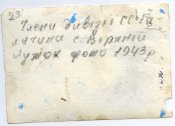 23
Члени дивізії СС Га
личина с. Верхній
Лужок фото 1943 р